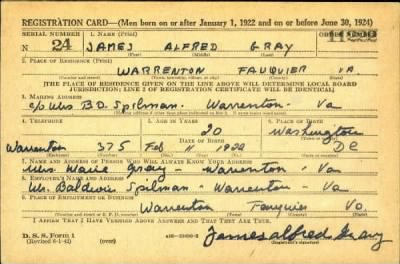 REGISTRATION CARD—(Men born on or after January 1, 1922 and on or before June 30, 1924)
SERIAL NUMBER 1. NAME (Print) ORDER NUMBER
N 24 JAMES ALFRED GRAY
(First) (Middle) (Last)
2. PLACE OF RESIDENCE (Print)
WARRENTON FAUQUIER VA.
(Number and street) (Town, township, village, or city) (County) (State)
[THE PLACE OF RESIDENCE GIVEN ON THE LINE ABOVE WILL DETERMINE LOCAL BOARD
JURISDICTION; LINE 2 OF REGISTRATION CERTIFICATE WILL BE IDENTICAL]
3. MAILING ADDRESS
c/o Mrs B.D. Spilman - Warrenton - Va
4. TELEPHONE 5. AGE IN YEARS 6. PLACE OF BIRTH
20 Washington
Warrenton 375 Feb 11 1922 DC
7. NAME AND ADDRESS OF PERSON WHO WILL ALWAYS KNOW YOUR ADDRESS
Mrs. Marie Gray - Warrenton - Va
8. EMPLOYER'S NAME AND ADDRESS
Mrs. Baldwin Spilman - Warrenton - Va
9. PLACE OF EMPLOYMENT OR BUSINESS
Warrenton Fauquier Va.
(Number and street or R. F. D. number) (Town) (County) (State)
I AFFIRM THAT I HAVE VERIFIED ABOVE ANSWERS AND THAT THEY ARE TRUE.
D. S. S. Form 1
(Revised 6-1-42) (over) James Alfred Gray
(Registrant's signature)